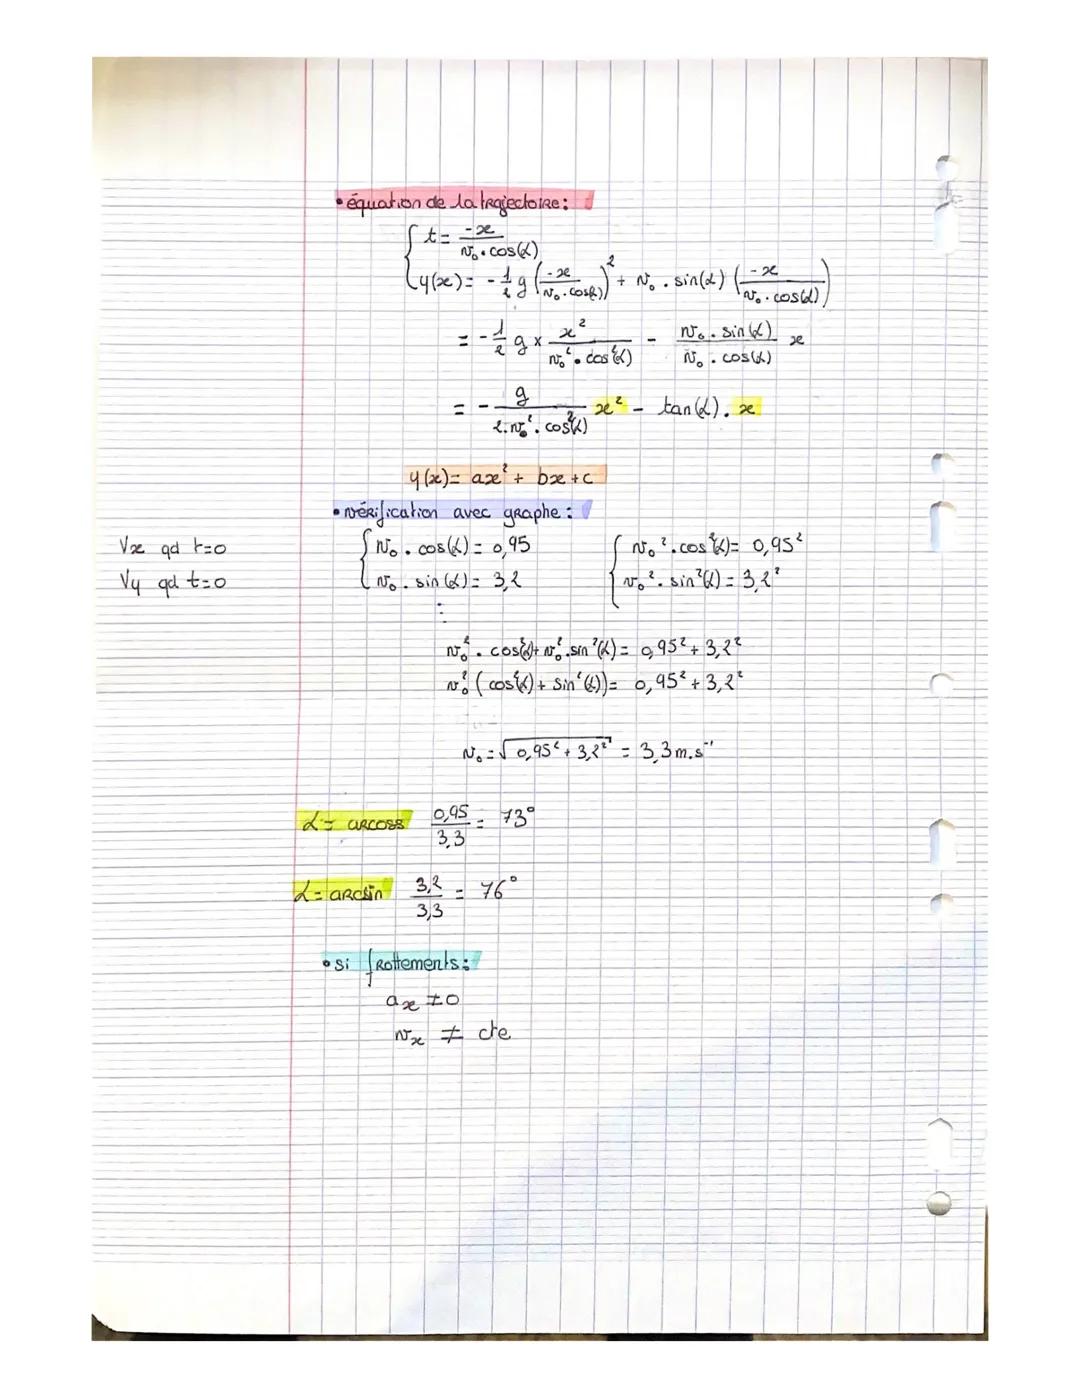 • équation de la trajectoire :
{ t = -x / (v₀ . cos(α))
{ y(x) = - 1/2 g (-x / (v₀ . cos(α)))² + v₀ . sin(α) (-x / (v₀ . cos(α)))
= - 1/2 g × x² / (v₀² . cos²(α)) - (v₀ . sin(α)) / (v₀ . cos(α)) x
= - g / (2.v₀² . cos²(α)) x² - tan(α) . x
y(x) = ax² + bx + c
• vérification avec graphe :
Vx qd t=0 { v₀ . cos(α) = 0,95 { v₀² . cos²(α) = 0,95²
Vy qd t=0 { v₀ . sin(α) = 3,2 { v₀² . sin²(α) = 3,2²
v₀² . cos²(α) + v₀² . sin²(α) = 0,95² + 3,2²
v₀² (cos²(α) + sin²(α)) = 0,95² + 3,2²
v₀ = √(0,95² + 3,2²) = 3,3 m.s⁻¹
α = arcoss 0,95 / 3,3 = 73°
α = arcsin 3,2 / 3,3 = 76°
• si frottements :
ax ≠ 0
vx ≠ cte